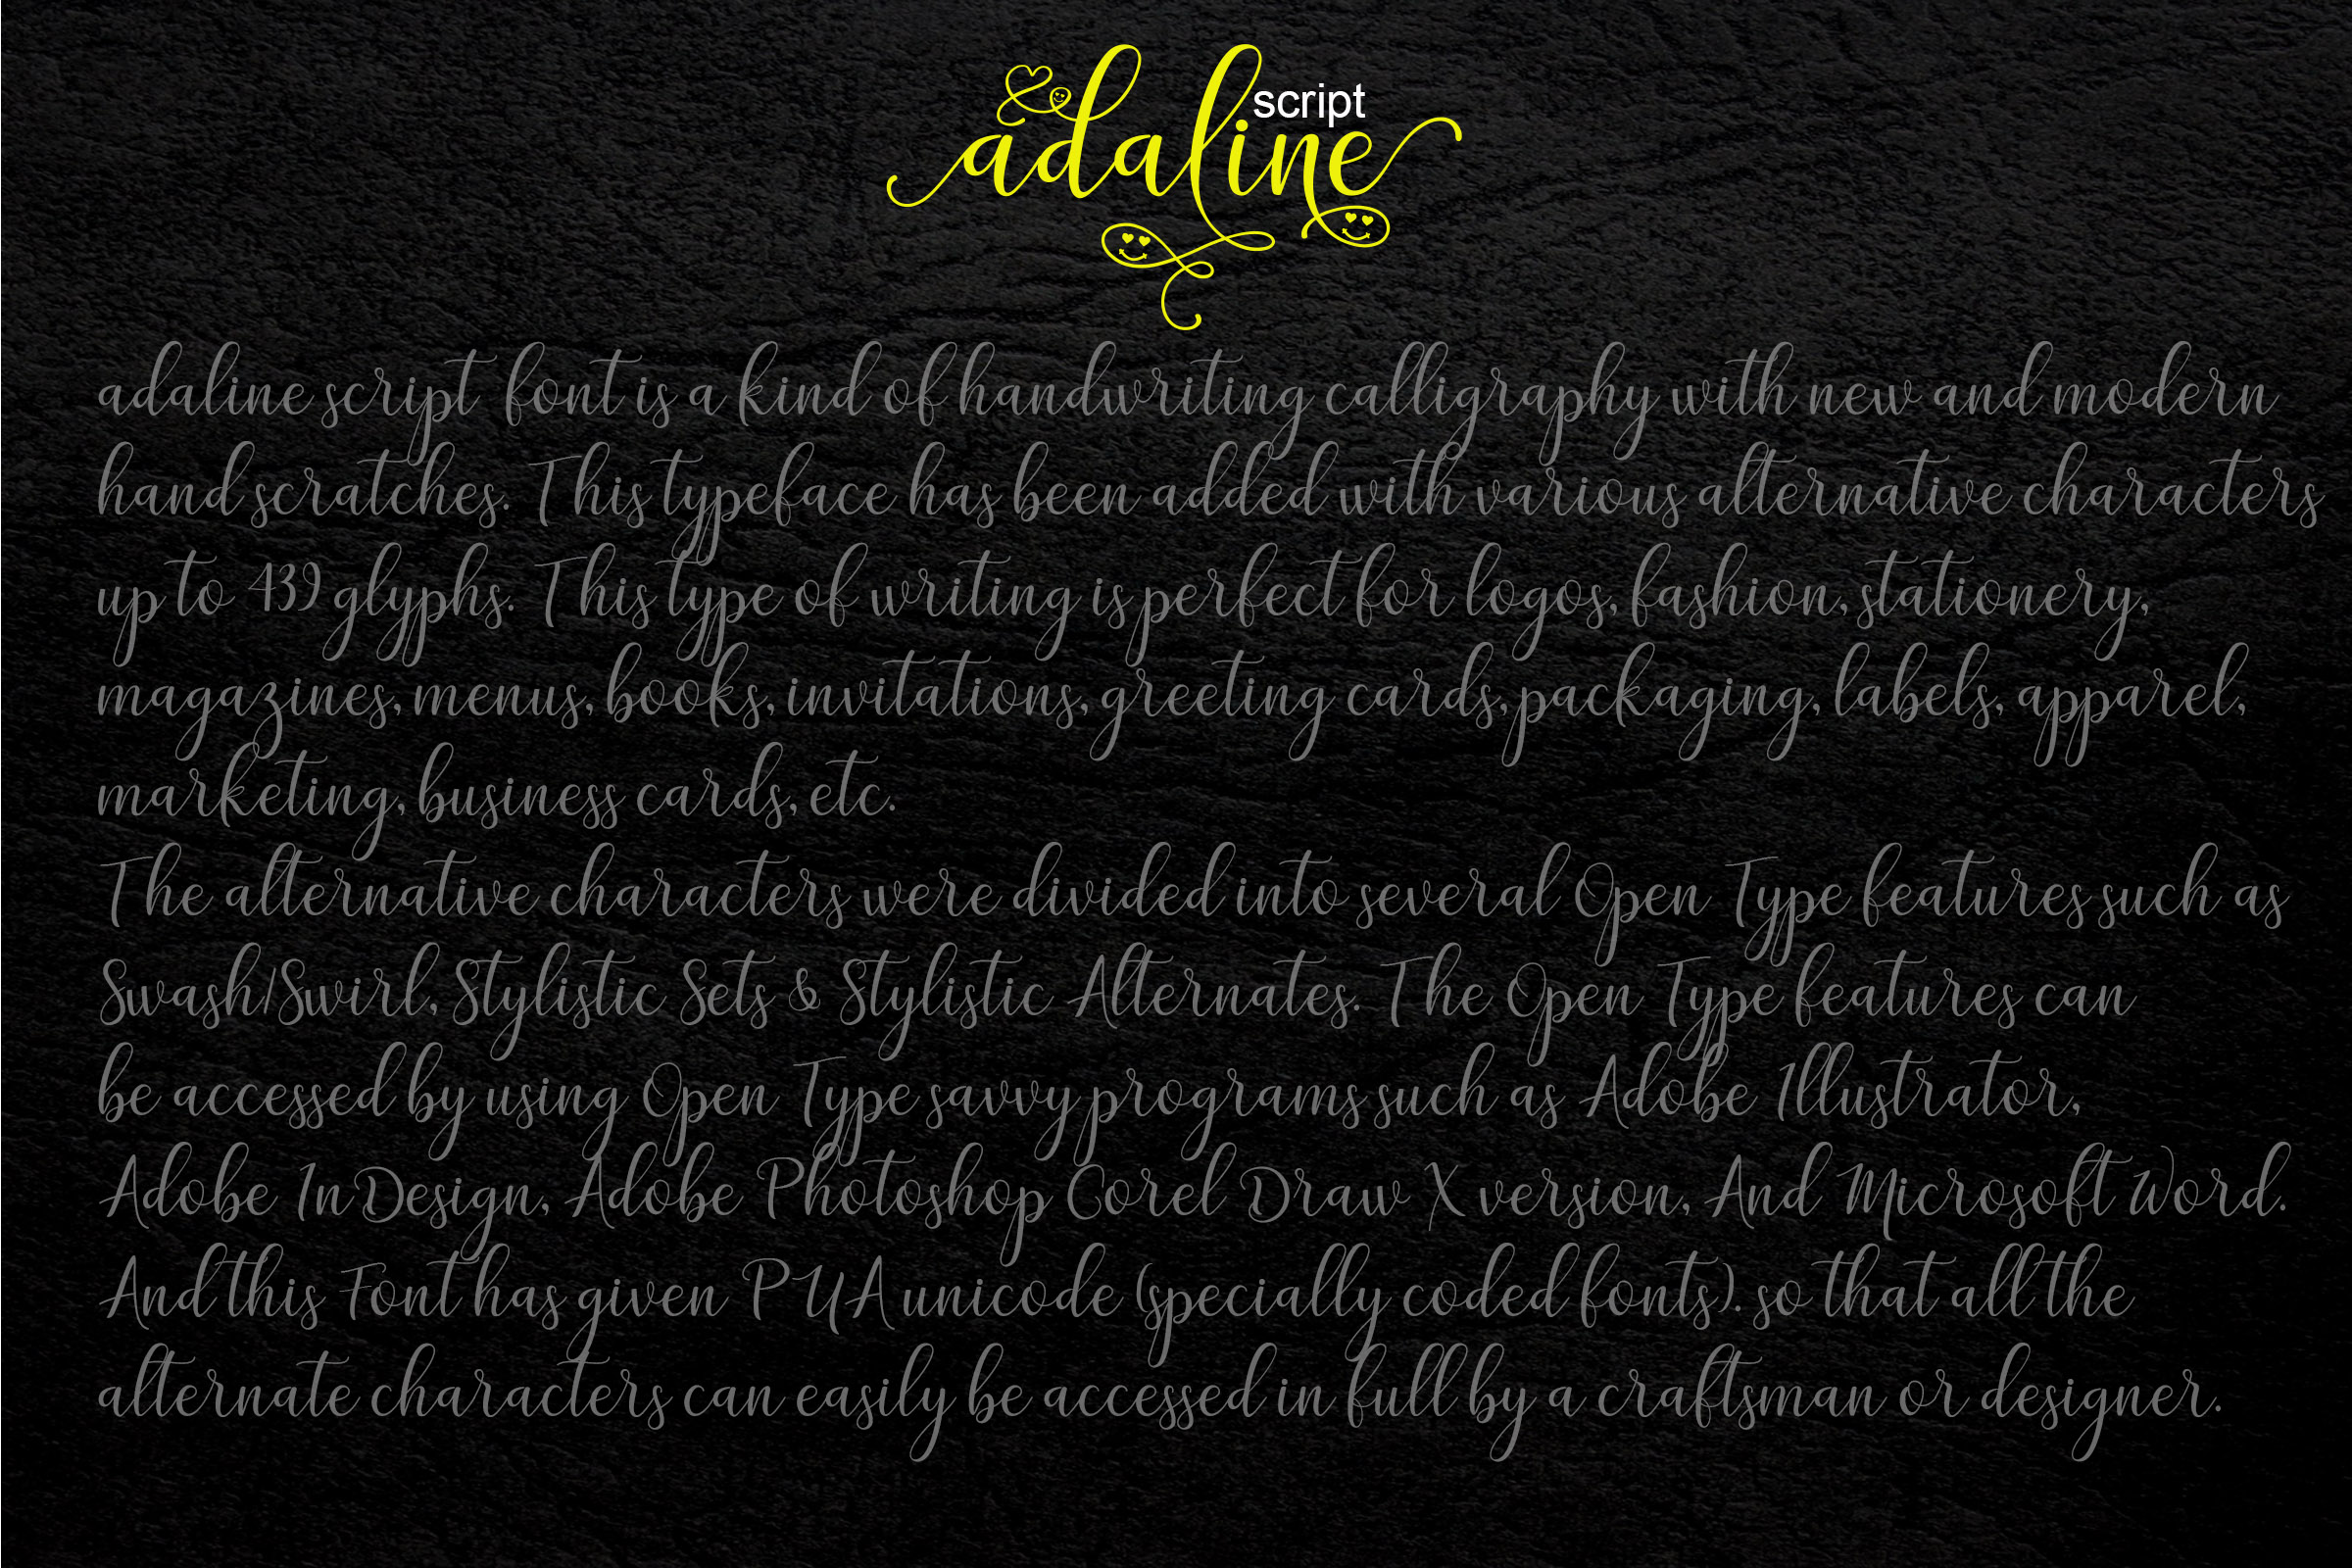 script
adaline
adaline script font is a kind of handwriting calligraphy with new and modern
hand scratches. This typeface has been added with various alternative characters
up to 439 glyphs. This type of writing is perfect for logos, fashion, stationery,
magazines, menus, books, invitations, greeting cards, packaging, labels, apparel,
marketing, business cards, etc.
The alternative characters were divided into several Open Type features such as
Swash/Swirl, Stylistic Sets & Stylistic Alternates. The Open Type features can
be accessed by using Open Type savvy programs such as Adobe Illustrator,
Adobe InDesign, Adobe Photoshop Corel Draw X version, And Microsoft Word.
And this Font has given PUA unicode (specially coded fonts). so that all the
alternate characters can easily be accessed in full by a craftsman or designer.